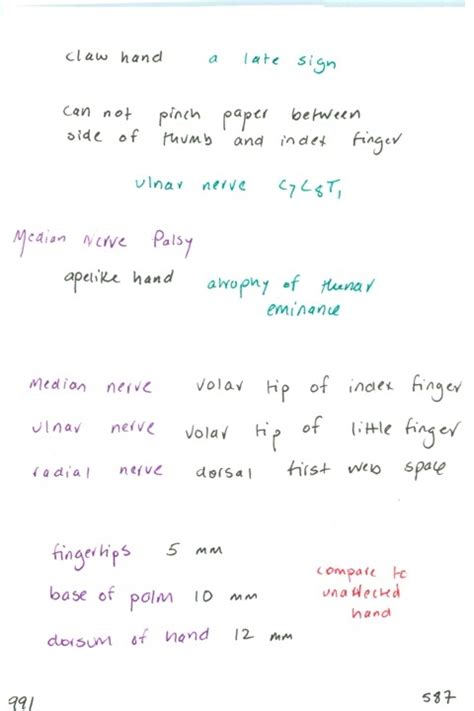 claw hand a late sign
can not pinch paper between
side of thumb and index finger
ulnar nerve C7C8T1
Median Nerve Palsy
apelike hand atrophy of thenar
eminance
Median nerve volar tip of index finger
ulnar nerve volar tip of little finger
radial nerve dorsal first web space
fingertips 5 mm
base of palm 10 mm
compare to
unaffected
hand
dorsum of hand 12 mm
991
587